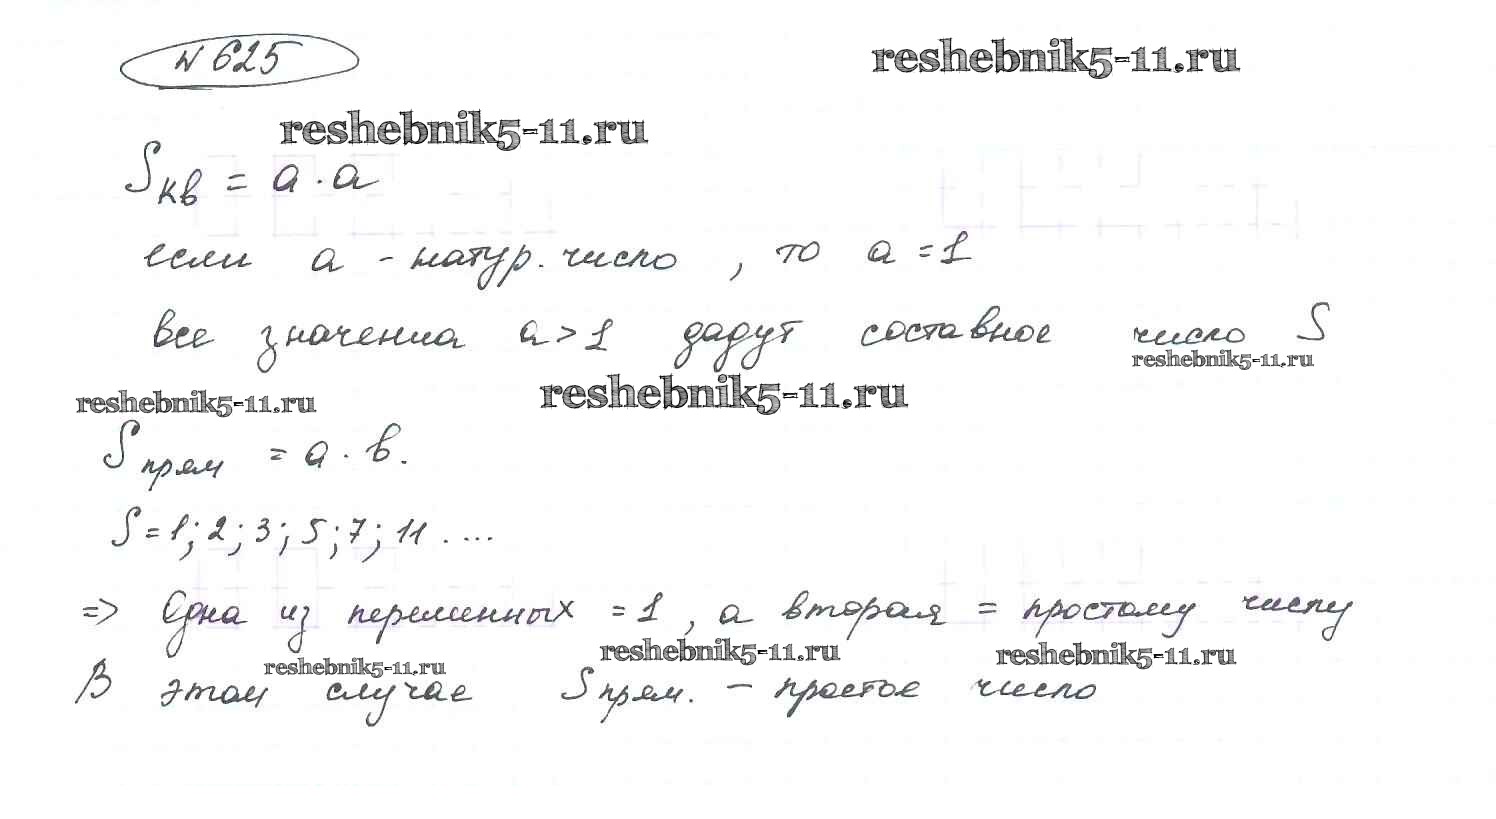 № 625
reshebnik5-11.ru
reshebnik5-11.ru
Sкв = a · a
если a - натур. число, то a = 1
все значения a > 1 дадут составное число S
reshebnik5-11.ru
reshebnik5-11.ru
reshebnik5-11.ru
Sпрям = a · в.
S = 1; 2; 3; 5; 7; 11 . ...
=> Одна из переменных = 1, а вторая = простому числу
reshebnik5-11.ru
reshebnik5-11.ru
reshebnik5-11.ru
В этом случае Sпрям. – простое число